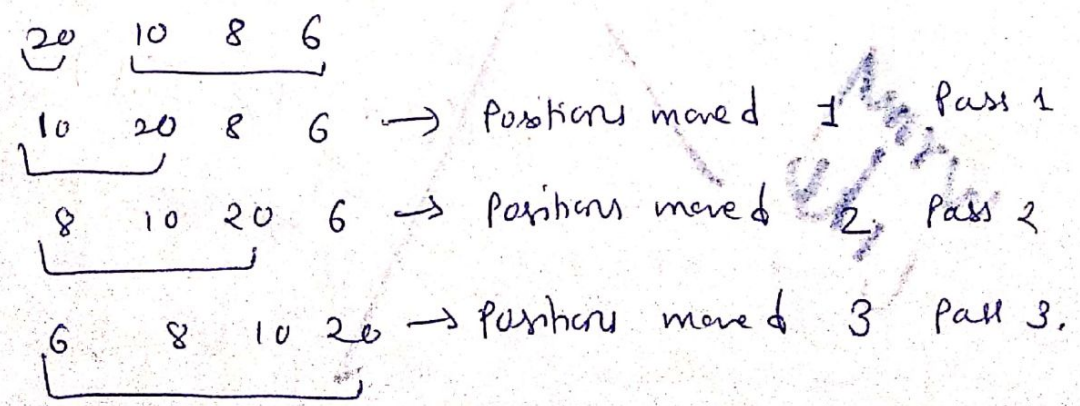 20 10 8 6
10 20 8 6 → Positions moved 1 Pass 1
8 10 20 6 → Positions moved 2, Pass 2
6 8 10 20 → Positions moved 3 Pass 3.